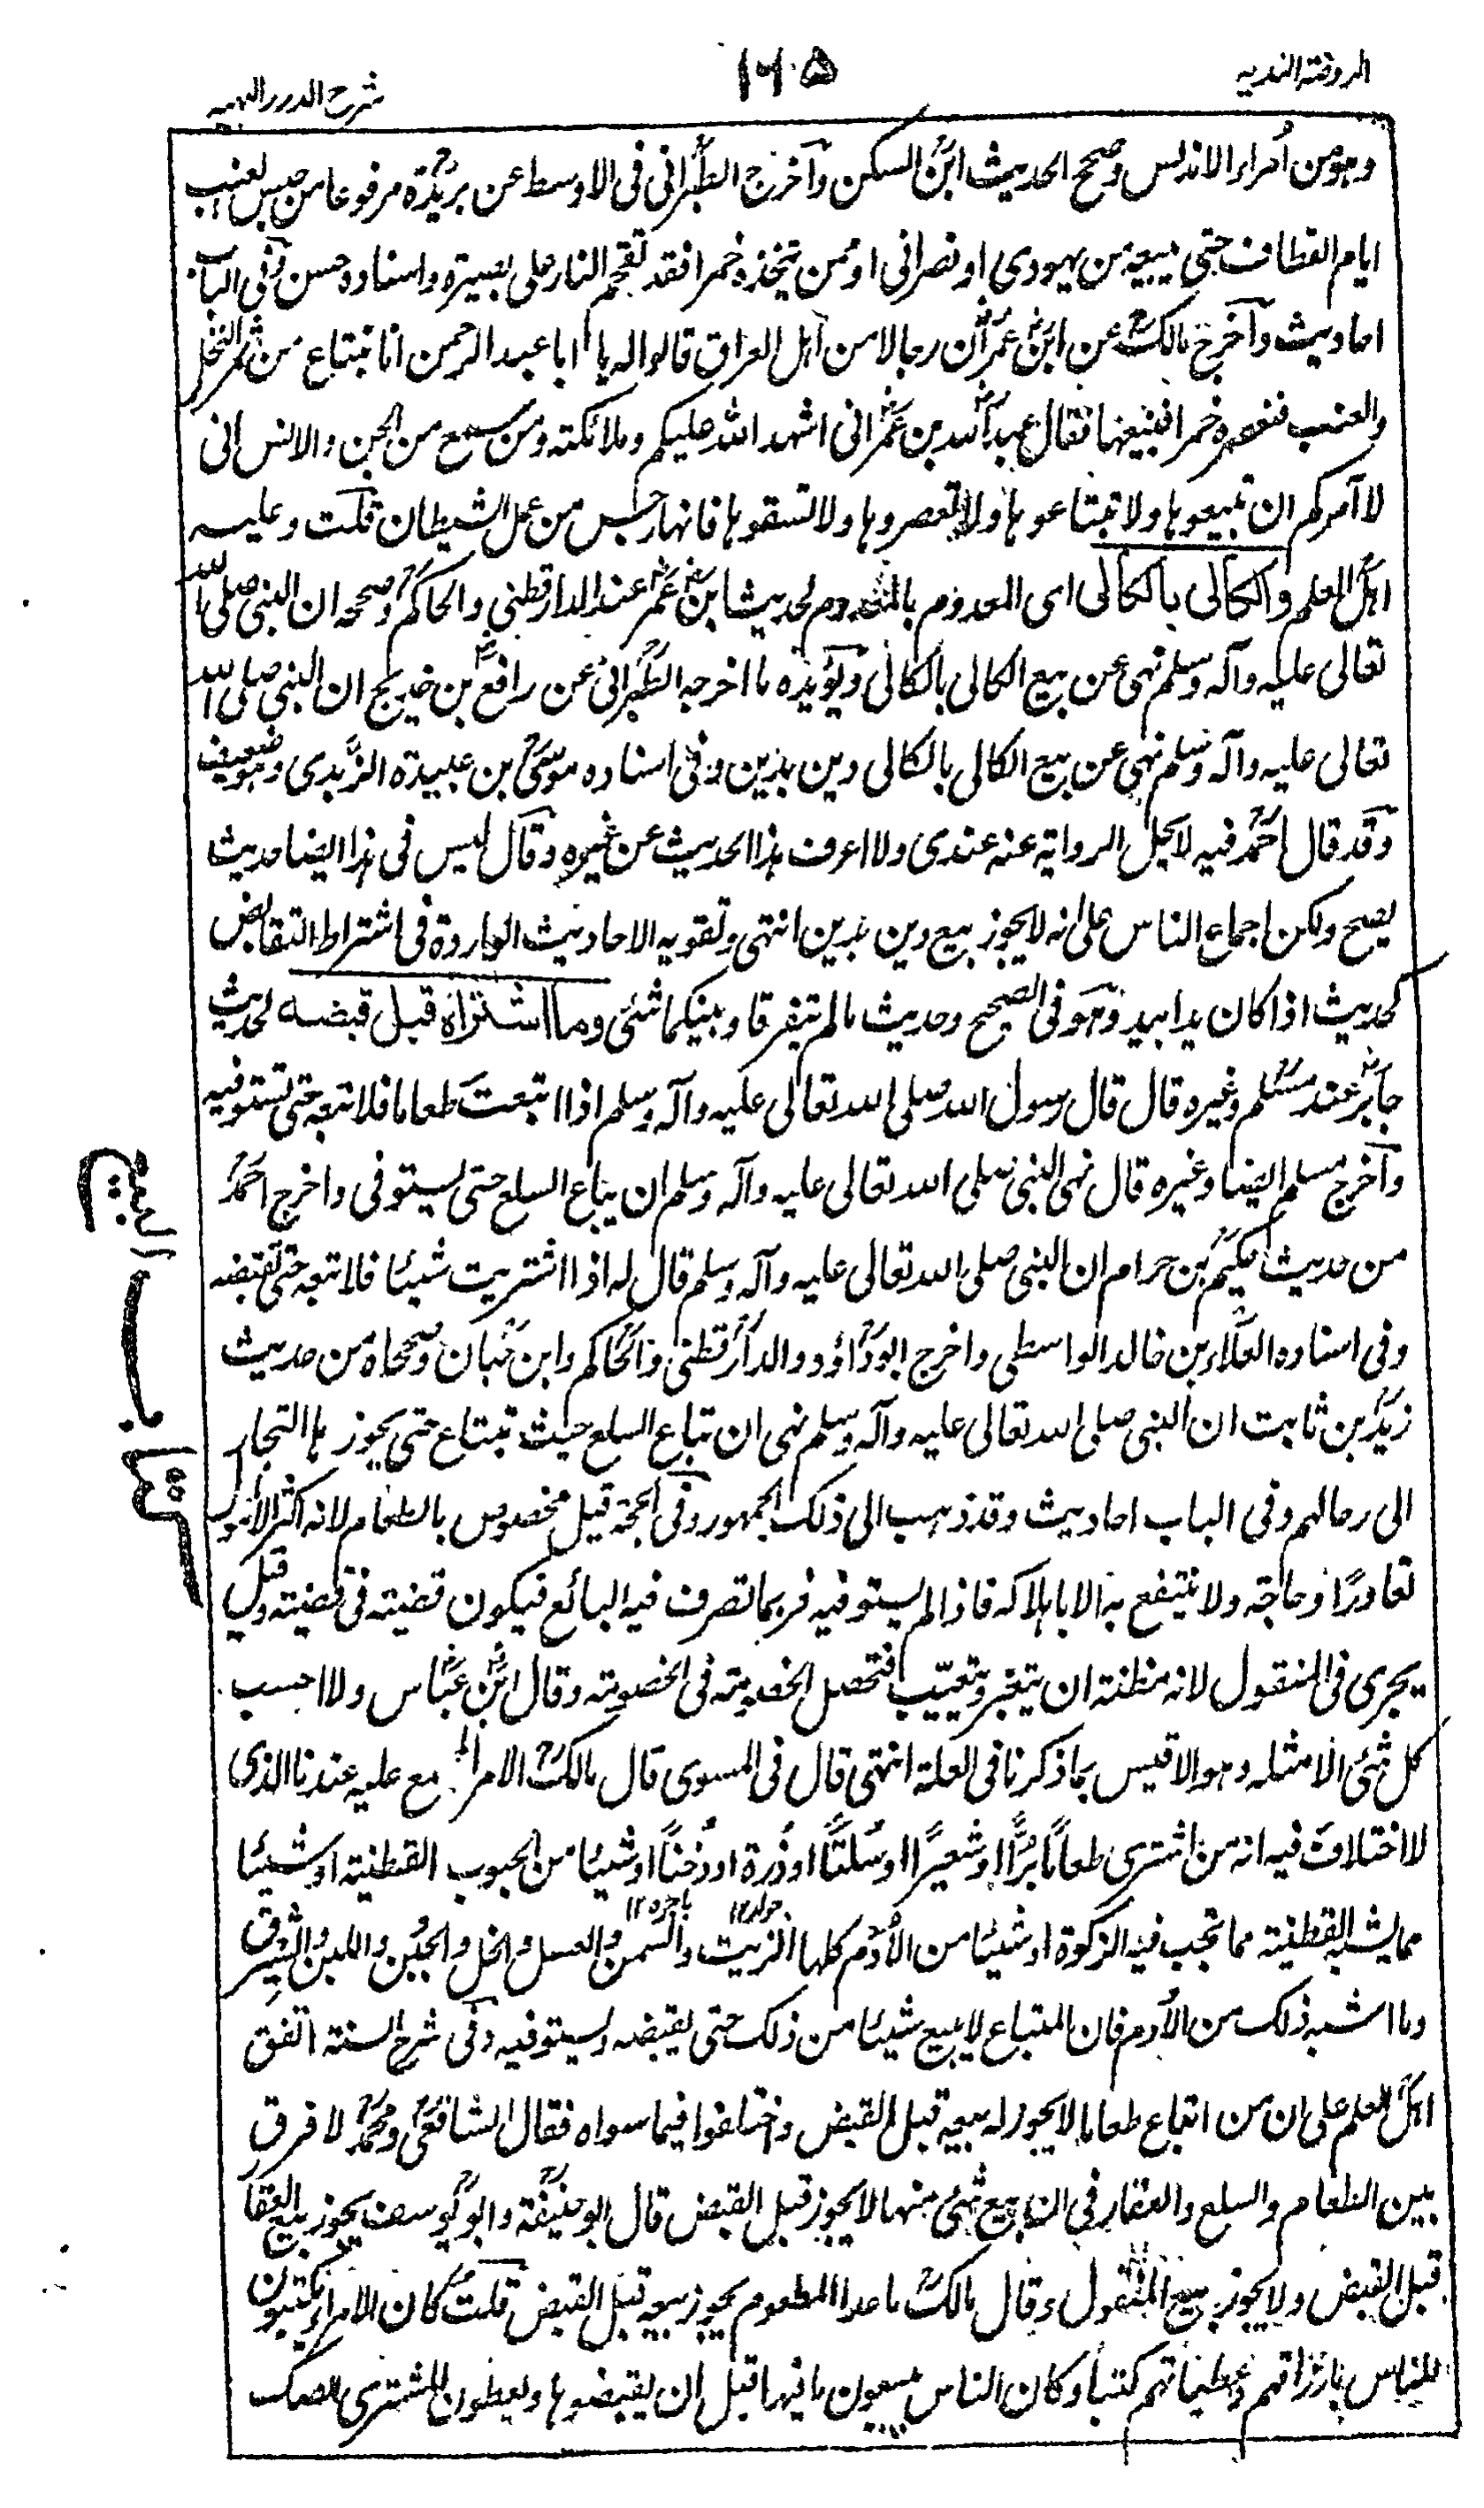 الروضة الندية
١٦٥
شرح الدرر البهية
وهو من أمراء الاندلس وصحح الحديث ابن السكن وأخرج الطبراني فى الاوسط عن بريدة مرفوعا من حبس العنب
ايام القطاف حتى يبيعه من يهودى او نصرانى او ممن يتخذه خمرا فقد تقحم النار على بصيرة واسناده حسن وفى الباب
احاديث وأخرج مالك عن ابن عمر أن رجالا من اهل العراق قالوا له يا ابا عبد الرحمن انا نبتاع من ثمر النخل
والعنب فنعصره خمرا فنبيعها فقال عبد الله بن عمر انى اشهد الله عليكم وملائكته ومن سمع من الجن والانس انى
لا آمركم ان تبيعوها ولا تبتاعوها ولا تعصروها ولا تسقوها فانها رجس من عمل الشيطان قلت وعليه
اهل العلم والكالى بالكالى اى المعدوم بالمعدوم لحديث ابن عمر عند الدارقطنى والحاكم وصححه ان النبى صلى الله
تعالى عليه وآله وسلم نهى عن بيع الكالى بالكالى ويؤيده ما اخرجه الطبرانى عن رافع بن خديج ان النبى صلى الله
تعالى عليه وآله وسلم نهى عن بيع الكالى بالكالى دين بدين وفى اسناده موسى بن عبيدة الربذى وهو ضعيف
وقد قال احمد فيه لا يحل الرواية عنه عندى ولا اعرف هذا الحديث عن غيره وقال ليس فى هذا ايضا حديث
يصح ولكن اجماع الناس على انه لا يجوز بيع دين بدين انتهى وتقويه الاحاديث الواردة فى اشتراط التقابض
كحديث اذا كان يدا بيد وهو فى الصحيح وحديث ما لم تتفرقا وبينكما شئ وما اشتراه قبل قبضه لحديث
جابر عند مسلم وغيره قال قال رسول الله صلى الله تعالى عليه وآله وسلم اذا ابتعت طعاما فلا تبعه حتى تستوفيه
وأخرج مسلم ايضا وغيره قال نهى النبى صلى الله تعالى عليه وآله وسلم ان يباع السلع حتى يستوفى واخرج احمد
من حديث حكيم بن حرام ان النبى صلى الله تعالى عليه وآله وسلم قال له اذا اشتريت شيئا فلا تبعه حتى تقبضه
وفى اسناده العلاء بن خالد الواسطى واخرج ابو داؤد والدارقطنى والحاكم وابن حبان وصححاه من حديث
زيد بن ثابت ان النبى صلى الله تعالى عليه وآله وسلم نهى ان تباع السلع حيث تبتاع حتى يحوزها التجار
الى رحالهم وفى الباب احاديث وقد ذهب الى ذلك الجمهور وفى الحجة قيل مخصوص بالطعام لانه اكثر الاموال
تعاورا وحاجة ولا ينتفع به الا باهلاكه فاذا لم يستوفيه فربما تصرف فيه البائع فيكون قضية فى قضية وقيل
يجرى فى المنقول لانه مظنة ان يتغير ويتعيب فتحصل الخصومة فى الخصومة وقال ابن عباس ولا احسب
كل شئ الا مثله وهو الاقيس بما ذكرنا فى العلة انتهى قال فى المسوى قال مالك الامر المجتمع عليه عندنا الذى
لا اختلاف فيه انه من اشترى طعاماً بُرًّا او شعيرًا او سُلتًا او ذُرة او دُخناً او شيئا من الحبوب القطنية او شيئا
جوار١٢ باجره١٢
مما يشبه القطنية مما تجب فيه الزكوة او شيئا من الأُدُم كلها الزيت والسمن والعسل والخل والجبن واللبن والشبرق
وما اشبه ذلك من الأُدم فان المبتاع لا يبيع شيئا من ذلك حتى يقبضه ويستوفيه وفى شرح السنة اتفق
اهل العلم على ان من ابتاع طعاما لا يجوز له بيعه قبل القبض واختلفوا فيما سواه فقال الشافعى ومحمد لا فرق
بين الطعام والسلع والعقار فى ان بيع شئ منها لا يجوز قبل القبض قال ابو حنيفة وابو يوسف يجوز بيع العقار
قبل القبض ولا يجوز بيع المنقول وقال مالك ما عدا المطعوم يجوز بيعه قبل القبض قلت كان الامراء يكتبون
للناس بارزاقهم وعطياتهم كتبا وكان الناس يبيعون ما فيها قبل ان يقبضوها ويعطون المشترى الصك